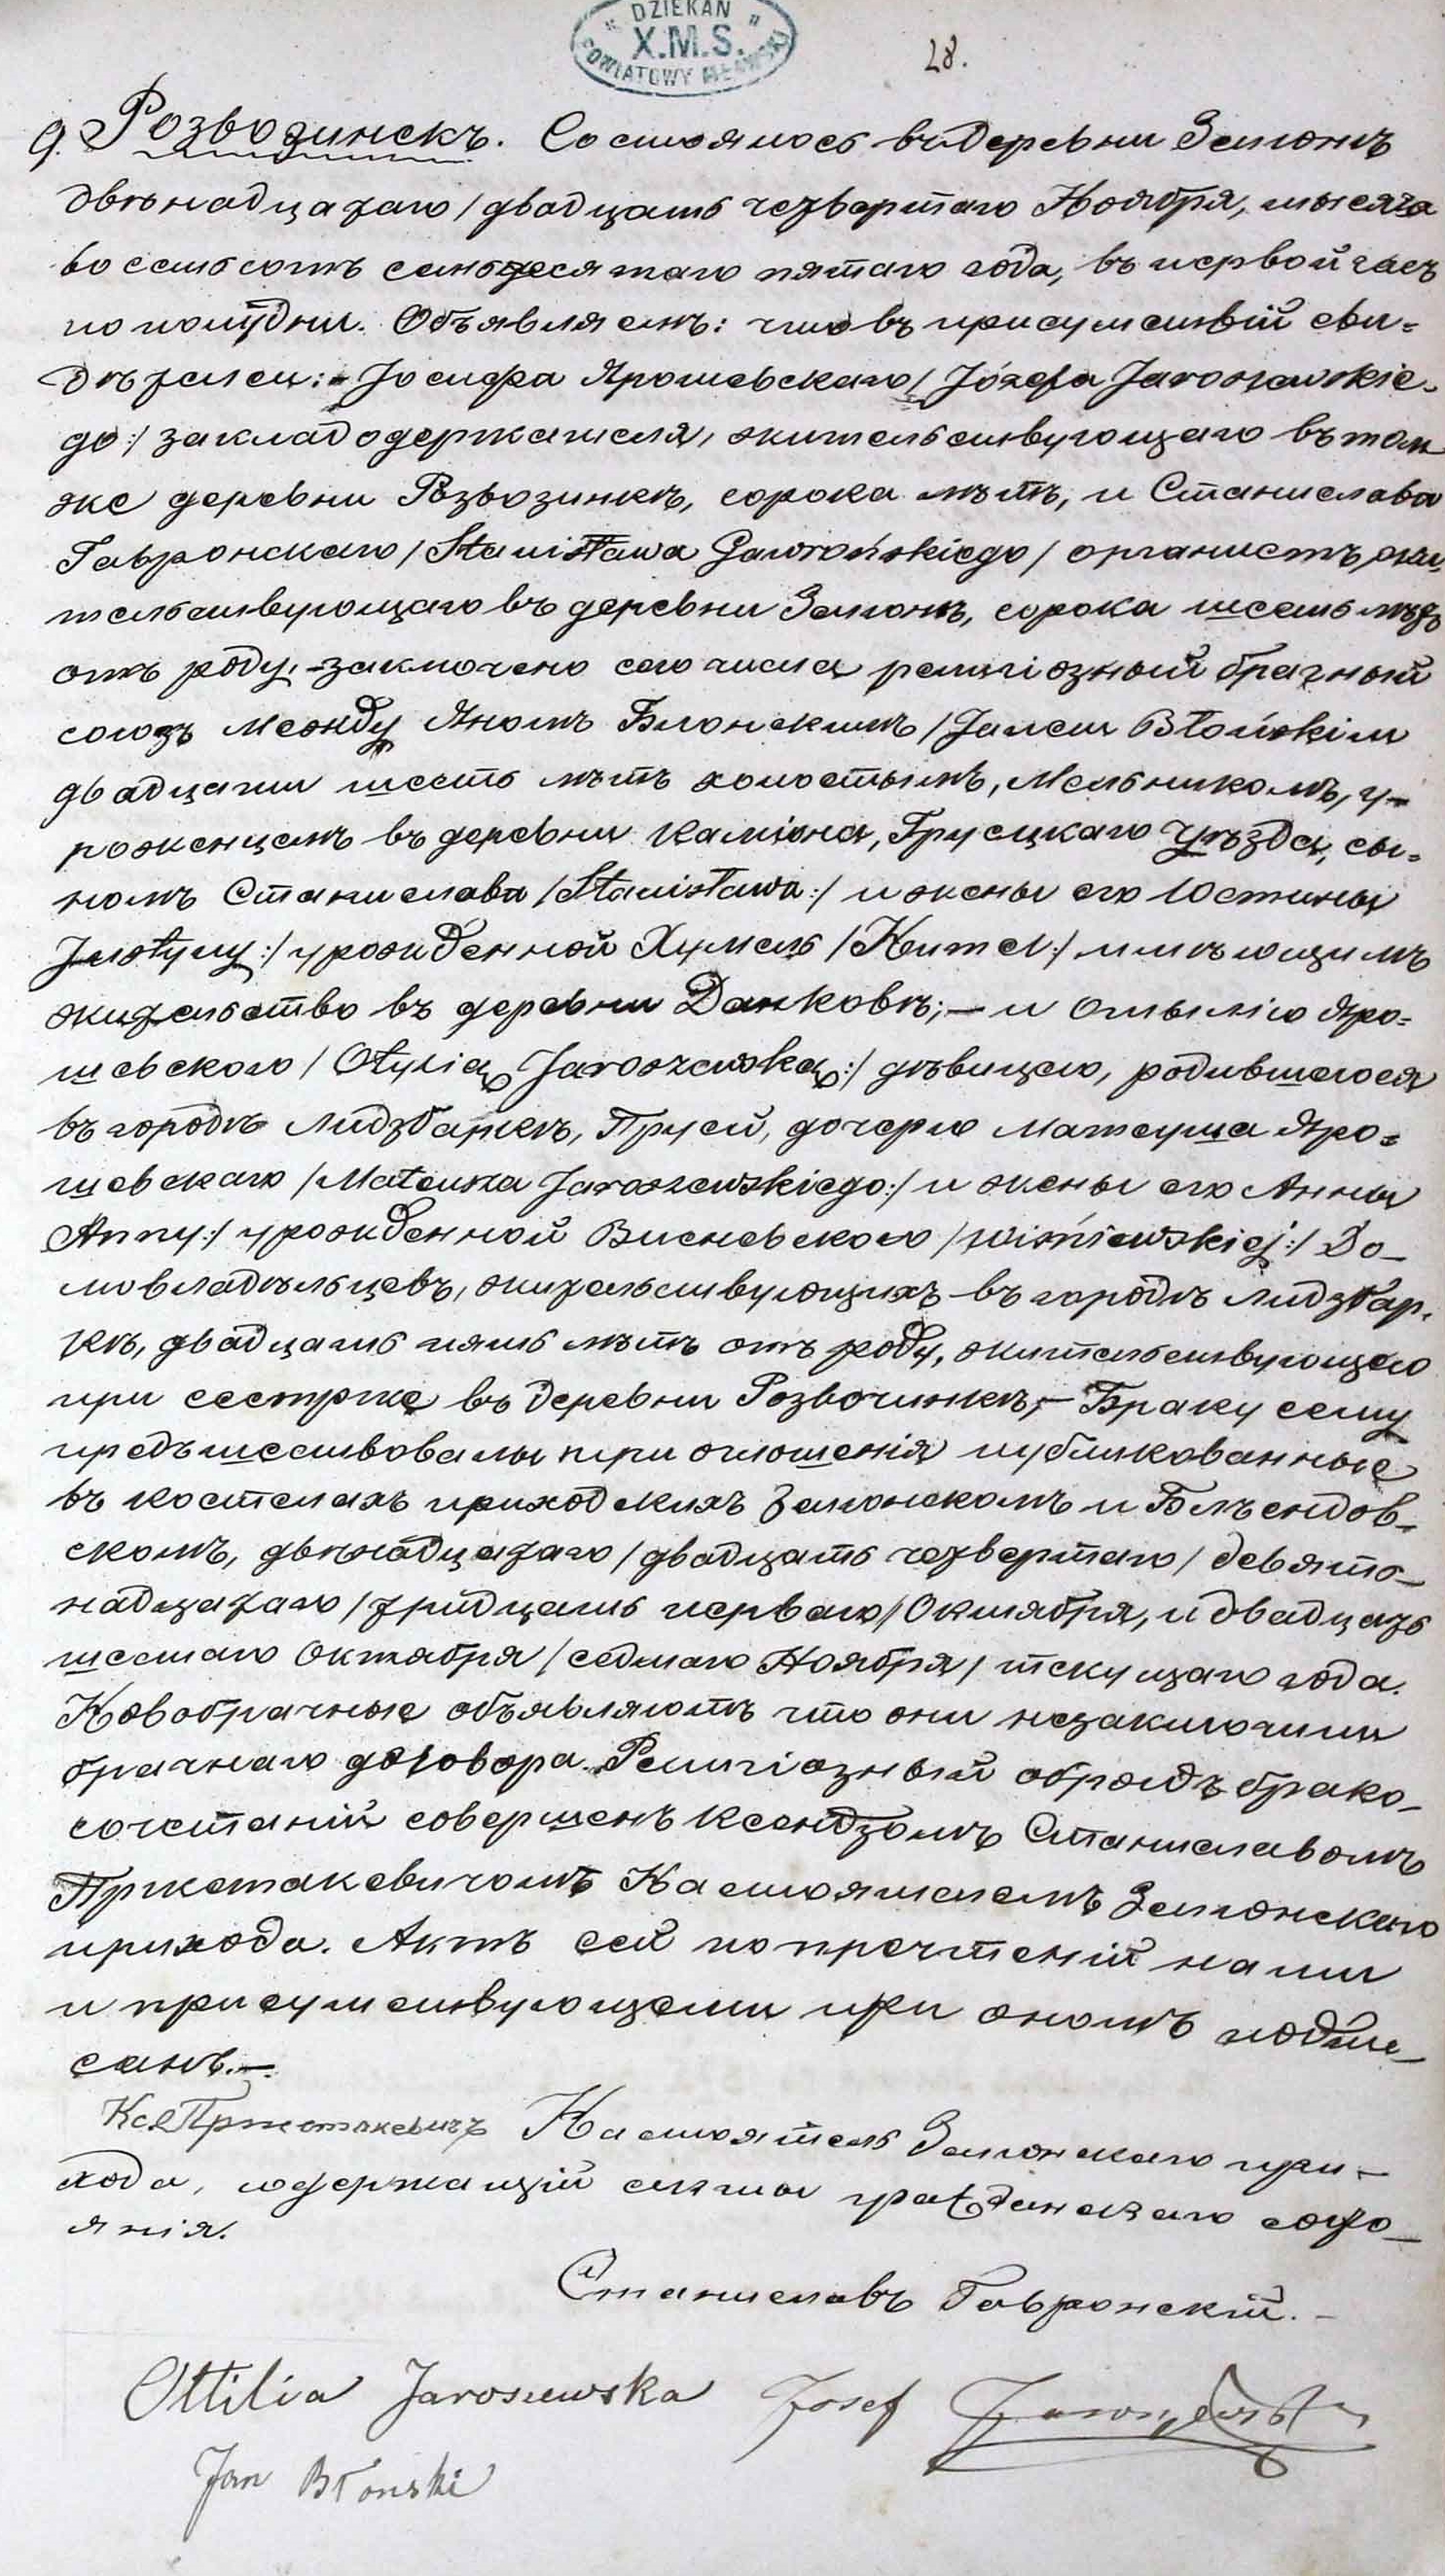 " DZIEKAN "
X.M.S.
POWIATOWY MŁAWSKI
28.
9. Розвозинскъ. Состоялось въ деревни Зелюнъ
двѣнадцатаго / двадцать четвертаго Ноября, тысяча
восемьсотъ семьдесятаго пятаго года, въ первой часъ
по полудни. Объявляемъ: что въ присутствій сви=
дѣтелей: Іосифа Ярошевскаго / Józefa Jaroszewskie=
go:/ закладодержателя, жительствующаго въ той
же деревни Розвозинкъ, сорока лѣтъ, и Станислава
Гавронскаго / Stanisława Gawrońskiego / органистъ, жи=
тельствующаго въ деревни Зелюнъ, сорока шесть лѣтъ
отъ роду, заключено сего числа религіозный брачный
союзъ между Яномъ Блонскимъ / Janem Błońskim
двадцати шесть лѣтъ холостымъ, Мельникомъ, у=
роженцемъ въ деревни Каміона, Груецкаго Уѣзда, сы=
номъ Станислава / Stanisława:/ и жены его Юстины
Justyny:/ урожденной Хумель / Kumel:/ имѣющимъ
жительство въ деревни Данковѣ; — и Отылію Яро=
шевскою / Otylią Jaroszewską:/ дѣвицею, родившеюся
въ городѣ Лидзбаркѣ, Прусій, дочерю Матеуша Яро=
шевскаго / Mateusza Jaroszewskiego:/ и жены его Анны
Anny:/ урожденной Висневскою / Wiśniewskiej:/ До=
мовладѣльцевъ, жительствующихъ въ городѣ Лидзбар=
кѣ, двадцать пять лѣтъ отъ роду, жительствующею
при сестрже въ деревни Розвочинкъ, — Браку сему
предъшествовалы три оглошенія публикованные
въ костелахъ приходскихъ Зелюнскомъ и Блѣендов=
скомъ, двѣнадцатаго / двадцать четвертаго / девято=
надцатаго / тридцать перваго / Октября, и двадцать
шестаго Октября / седмаго Ноября / текущаго года.
Новобрачные объявляютъ что они незаключили
брачнаго договора. Религіозный обрядъ брако=
сочетаній совершенъ Ксендзомъ Станиславомъ
Пржетакевичомъ Настоятелемъ Зелюнскаго
прихода. Актъ сей по прочтеній нами
и присутствующеми при ономъ подпи=
санъ. —
Кс. Пржетакевичъ Настоятель Зелюнскаго при=
хода, содержащій акты гражданскаго состо=
янія.
Станиславъ Гавронскій. —
Ottilia Jaroszewska Josef Jaroszewski
Jan Błonski